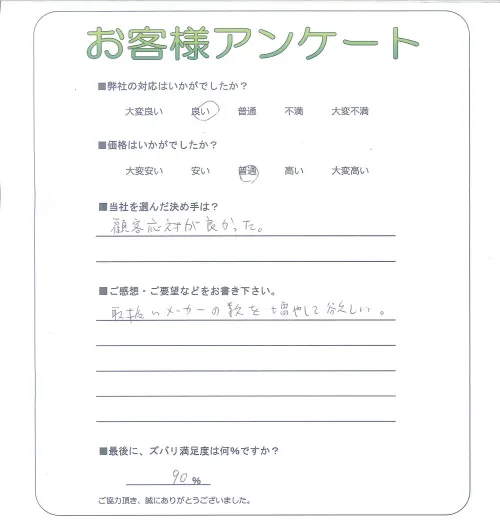 お客様アンケート
■弊社の対応はいかがでしたか？
大変良い 良い 普通 不満 大変不満
■価格はいかがでしたか？
大変安い 安い 普通 高い 大変高い
■当社を選んだ決め手は？
顧客応対が良かった。
■ご感想・ご要望などをお書き下さい。
取扱いメーカーの数を増やして欲しい。
■最後に、ズバリ満足度は何%ですか？
90 %
ご協力頂き、誠にありがとうございました。